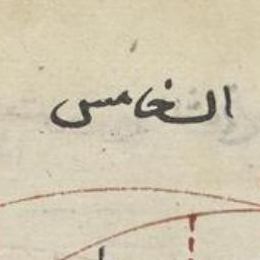 الخامس